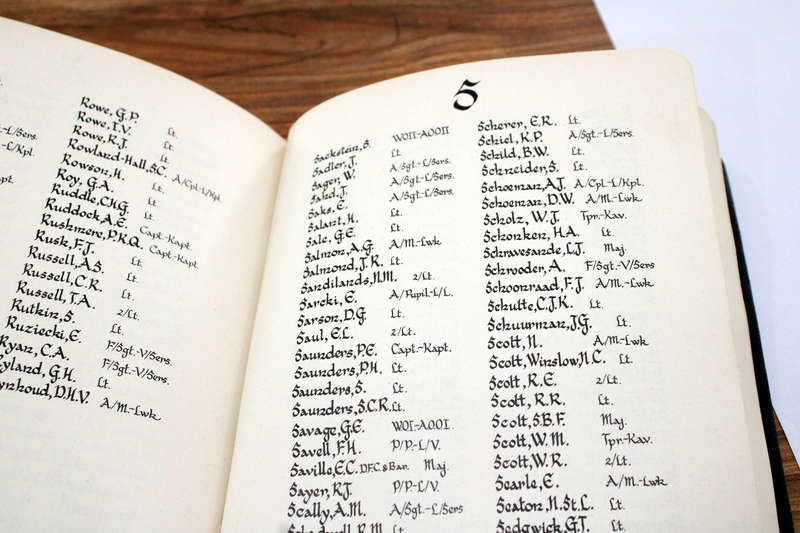 Rowe, G.P. Lt.
Rowe, I.V. Lt.
Rowe, R.J. Lt.
Rowland-Hall, S.C. A/Cpl-L/Kpl.
Rowson, H. Lt.
Roy, G.A. Lt.
Ruddle, C.H.G. Lt.
Ruddock, A.E. Capt-Kapt.
Rushmere, P.K.Q. Capt-Kapt.
Rusk, F.J. Lt.
Russell, A.S. Lt.
Russell, C.R. Lt.
Russell, T.A. 2/Lt.
Rutkin, S. Lt.
Ruziecki, E. F/Sgt-V/Sers.
Ryan, C.A. F/Sgt-V/Sers.
Ryland, G.H. Lt.
A/M.-Lwk
S
Sackstein, S. WOII-AOOII
Sadler, J. Lt.
Sager, W. A/Sgt.-L/Sers.
Sahd, J. A/Sgt.-L/Sers.
Saks, E. A/Sgt.-L/Sers.
Salant, H. Lt.
Sale, G.E. Lt.
Salmon, A.G. A/M.-Lwk
Salmond, J.R. Lt.
Sandilands, N.M. 2/Lt.
Sarcki, E. A/Pupil-L/L.
Sarson, D.G. Lt.
Saul, E.L. 2/Lt.
Saunders, P.E. Capt.-Kapt.
Saunders, P.H. Lt.
Saunders, S. Lt.
Saunders, S.C.R. Lt.
Savage, G.E. WOI-AOOI
Savell, F.H. P/P.-L/V.
Saville, E.C. D.F.C. & Bar. Maj.
Sayer, R.J. P/P.-L/V.
Scally, A.M. A/Sgt.-L/Sers
Scherer, E.R. Lt.
Schiel, K.P. A/Sgt.-L/Sers.
Schild, B.W. Lt.
Schneider, S. Lt.
Schoeman, A.J. A/Cpl.-L/Kpl.
Schoeman, D.W. A/M.-Lwk
Scholz, W.J. Tpr-Kav.
Schonken, H.A. Lt.
Schravesande, L.J. Maj.
Schrooder, A. F/Sgt-V/Sers
Schoonraad, F.J. A/M.-Lwk
Schutte, C.J.K. Lt.
Schuurman, J.G. Lt.
Scott, N. A/M.-Lwk
Scott, Winslow, N.C. Lt.
Scott, R.E. 2/Lt.
Scott, R.R. Lt.
Scott, S.B.F. Maj.
Scott, W.M. Tpr-Kav.
Scott, W.R. 2/Lt.
Searle, E. A/M.-Lwk
Seaton, N.St.L. Lt.
Sedgwick, G.T. Lt.